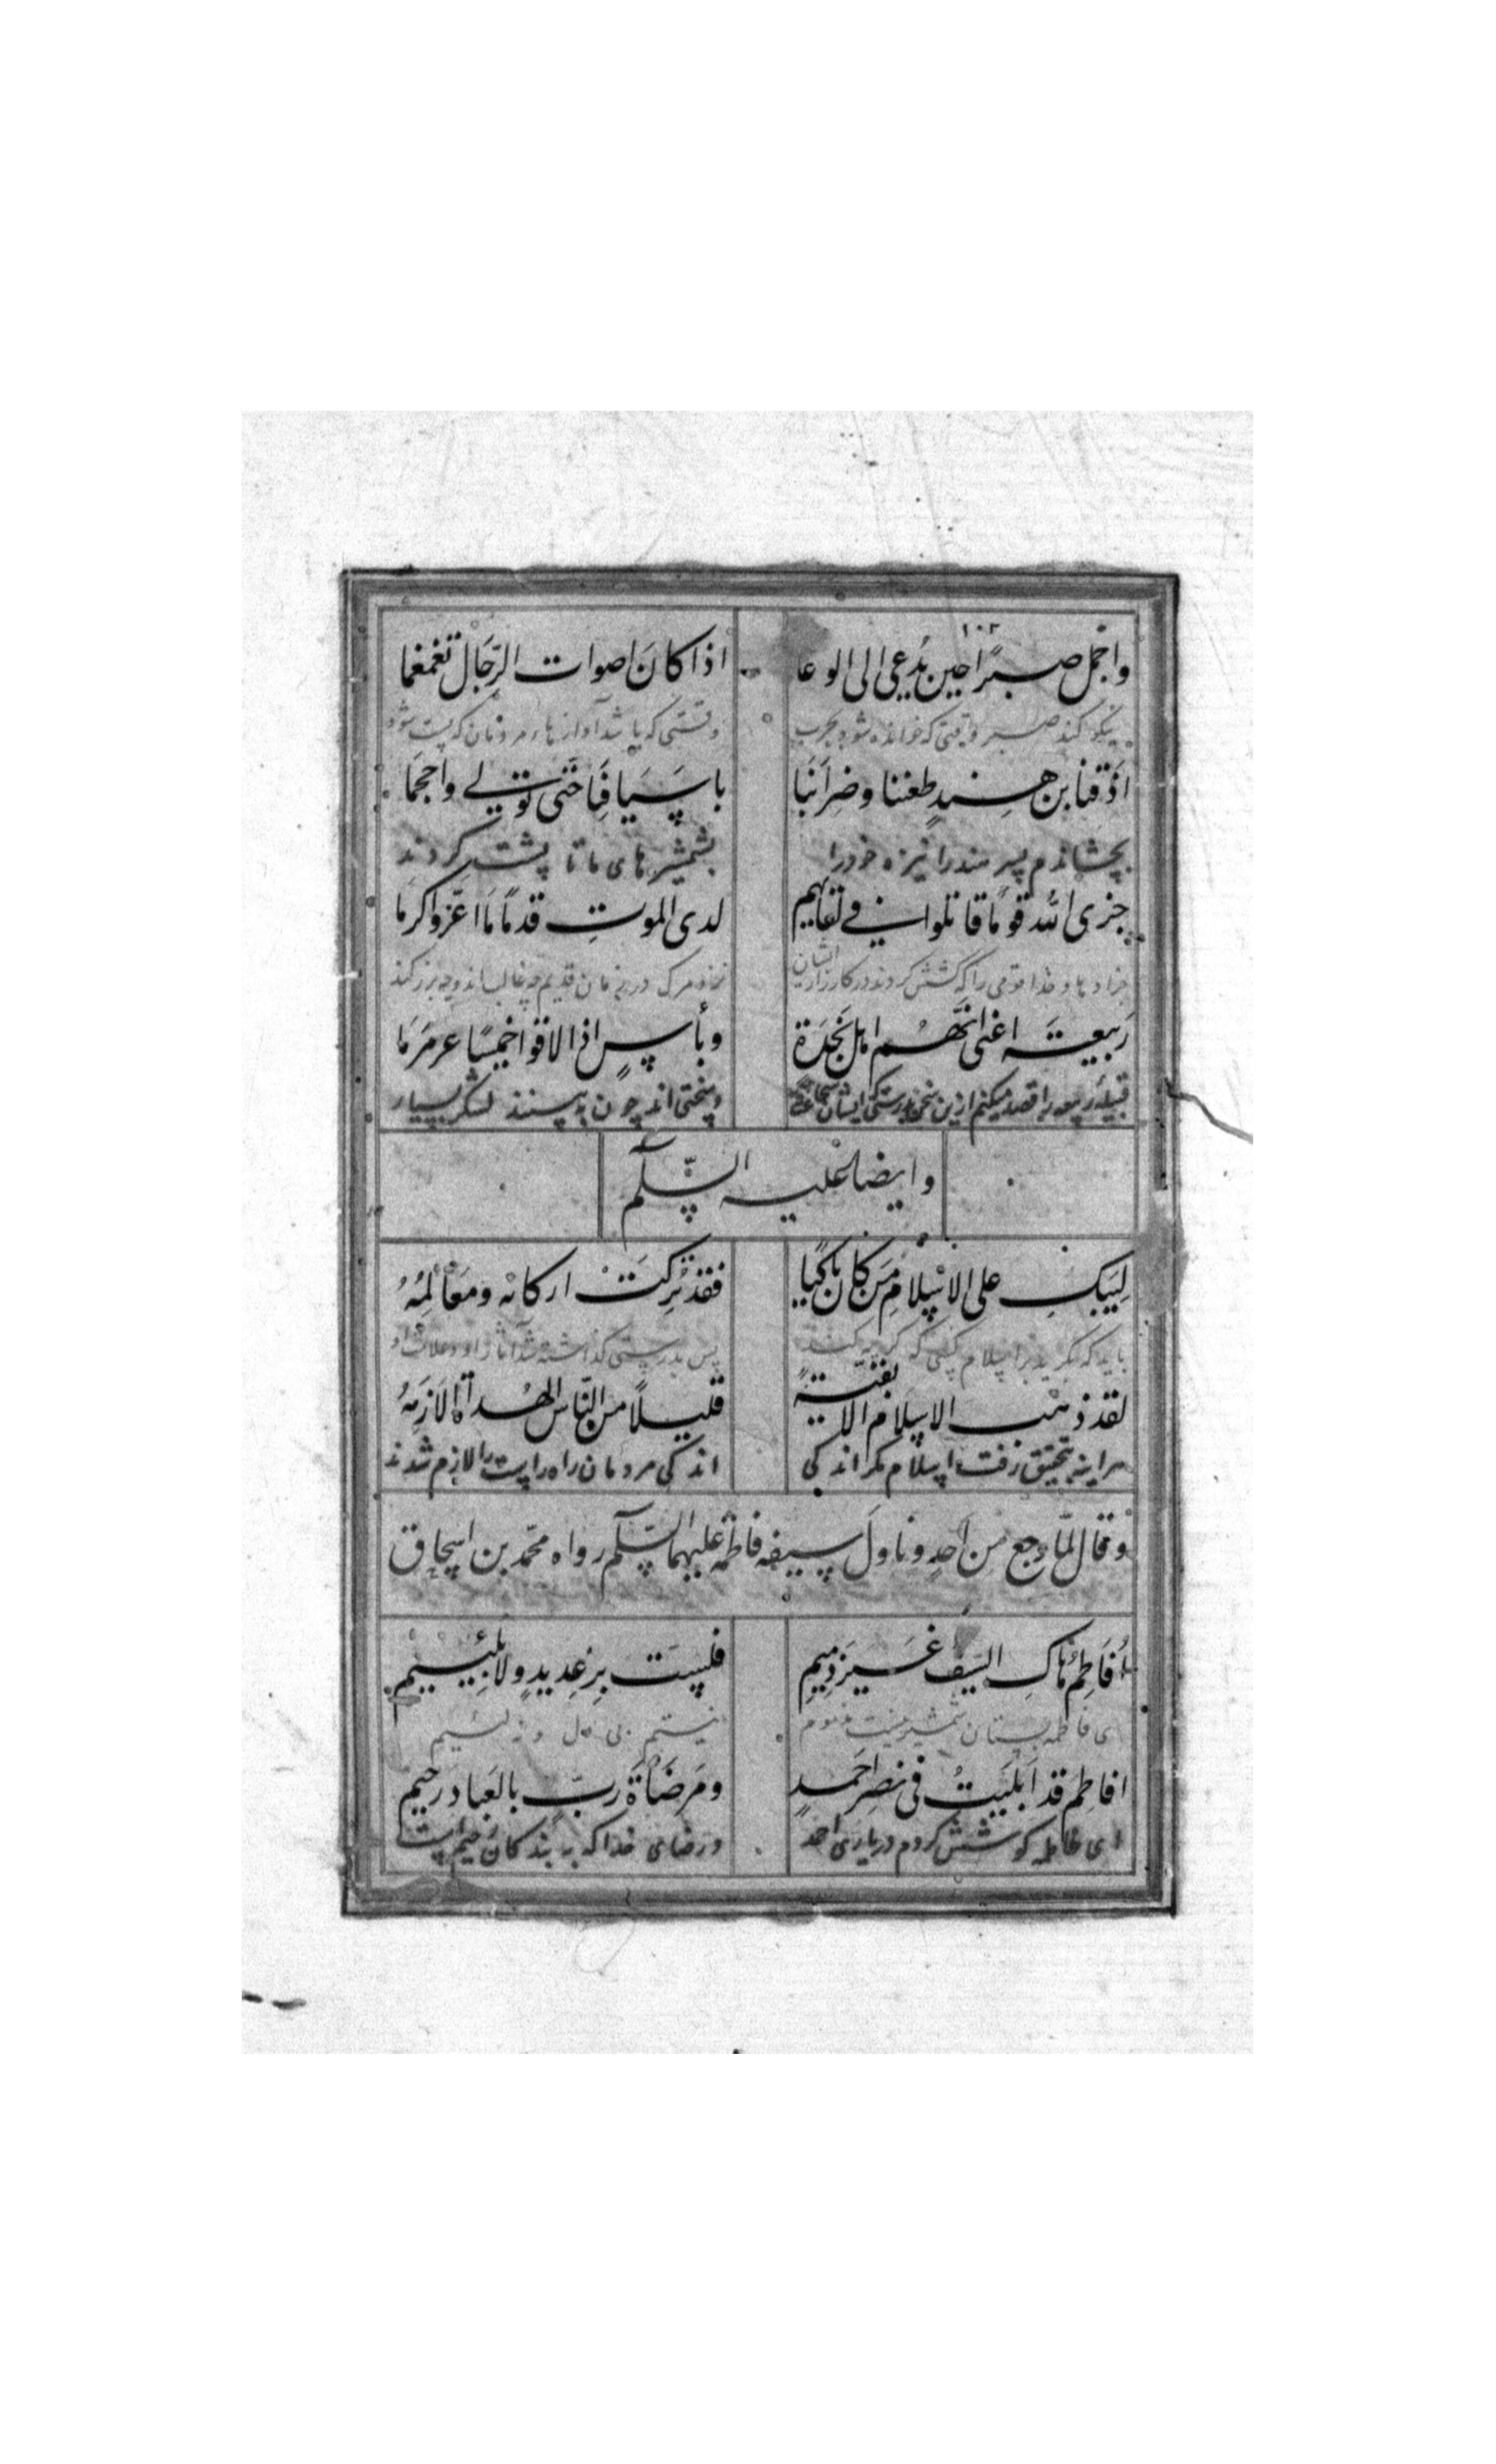 ۱۰۲
واجمل صبرًا حين يُدعى الى الوغا اذا كانَ اصوات الرّجَال تغمغما
نیکو کند صبر وقتی که خوانده شود بحرب وقتی که باشد آوازهاء مردمان که پست شود
اَذَقنا بن هنيدٍ طعننا وضِرَابنَا باَسيَافِنَا حَتّى تولّى واحجمَا
بچشاندم پسر هند را نیزه خود را بشمشیرهای ما تا پشت کردند
جزى الله قومًا قاتلوا فى لقايهم لدى الموتِ قدمًا مَا اعَزّ واكرمَا
جزا دهاد خدا قومی را که کشش کردند در کارزار ایشان نزد مرگ در زمان قدیم چه غالب اند و چه بزرگند
رَبيعَة اعنى انّهُم اهل نَجدَة وبأسٍ اذا لاقوا خميسًا عرمرَمَا
قبیلهٔ ربیعه را قصد میکنم ازین سخن بدرستی ایشان وسختی اند چون به بینند لشکر بسیار
وايضا عليه السّلم
لِيَبكِ على الاسلامِ مَن كانَ باكيًا فقد تُرِكَتْ اركانه ومَعَالِمُهُ
باید که بگرید بر اسلام کسی که گریه کند پس بدرستی گذاشته شد آثار او و علامات او
لقد ذهب الاسلام الا بقيّةً قليلاً من النّاس الهُداة الازمُهُ
هر اینه بتحقیق رفت اسلام مگر اندکی اندکی مردمان راه راست را لازم شدند
وقال لمّا رجع من اُحدٍ وناولَ سيفه فاطمة عليهما السّلم رواه محمّد بن اسحاق
اَفَاطِمُ هاكِ السَيفَ غَيرَ ذميمِ فلستُ بِرِعديدٍ ولا بلئيمِ
ای فاطمه بستان شمشیر نیست مذموم نیستم بی دل و نه لئیم
افاطِم قد اَبلَيتُ فى نصرِ احمدٍ ومَرضَاةَ ربّ بالعَباد رحيم
ای فاطمه کوشش کردم در یاری احمد و رضای خدا که به بندگان رحیم است